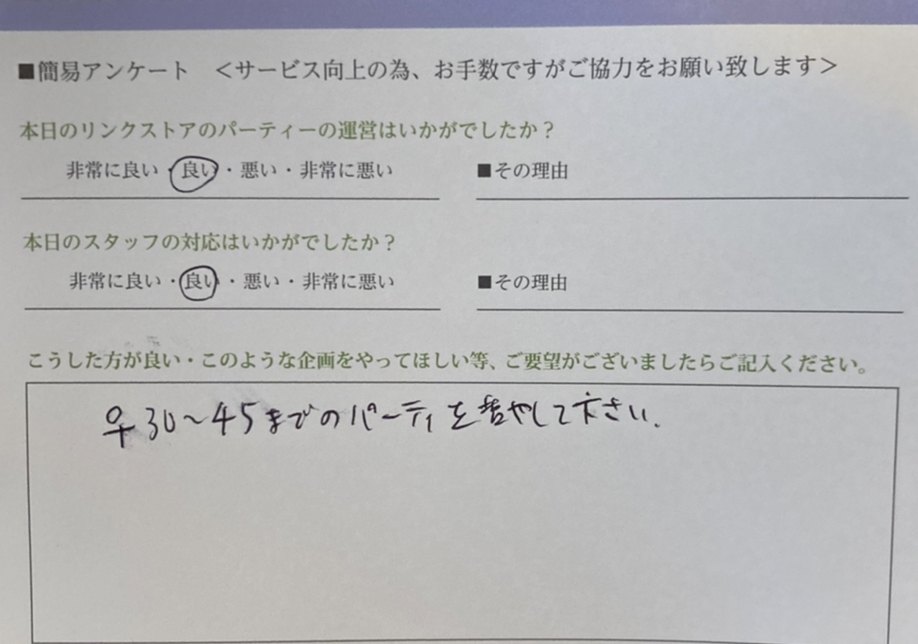 ■簡易アンケート ＜サービス向上の為、お手数ですがご協力をお願い致します＞
本日のリンクストアのパーティーの運営はいかがでしたか？
非常に良い・良い・悪い・非常に悪い ■その理由
本日のスタッフの対応はいかがでしたか？
非常に良い・良い・悪い・非常に悪い ■その理由
こうした方が良い・このような企画をやってほしい等、ご要望がございましたらご記入ください。
♀30～45までのパーティを増やして下さい.